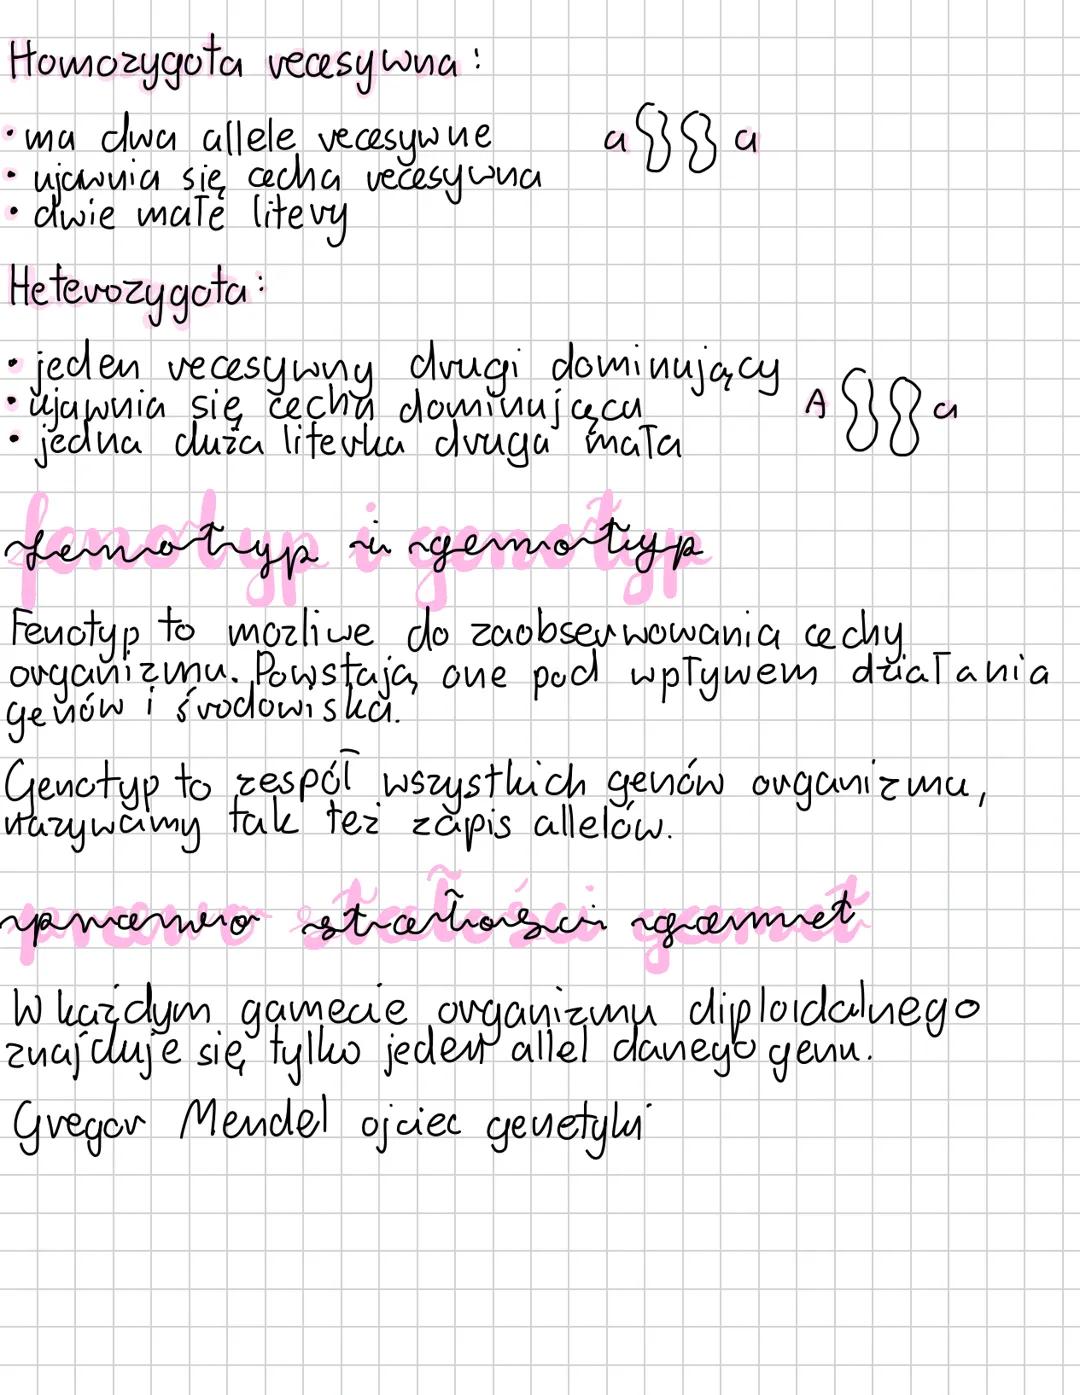 Homozygota recesywna:
• ma dwa allele recesywne
a a
• ujawnia się cecha recesywna
• dwie małe litery
Heterozygota:
• jeden recesywny drugi dominujący
• ujawnia się cecha dominująca
A a
• jedna duża literka druga mała
fenotyp i genotyp
Fenotyp to możliwe do zaobserwowania cechy
organizmu. Powstają one pod wpływem działania
genów i środowiska.
Genotyp to zespół wszystkich genów organizmu,
nazywamy tak też zapis allelów.
prawo stałości gamet
W każdym gamecie organizmu diploidalnego
znajduje się tylko jeden allel danego genu.
Gregor Mendel ojciec genetyki